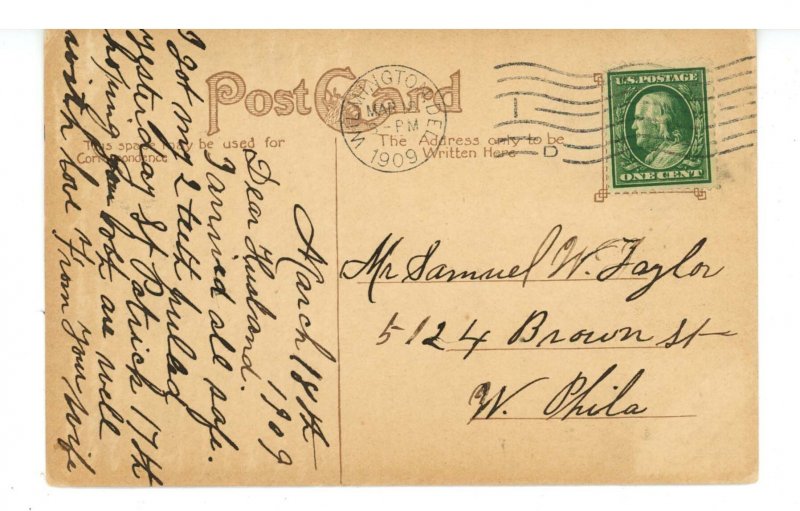 Post Card
This space may be used for
Correspondence
The Address only to be
Written Here
WILMINGTON, DEL.
MAR 18
-PM
1909
1
D
U.S. POSTAGE
ONE CENT
March 18th
1909
Dear Husband.
I arrived all safe.
I got my 2 teeth pulled
yesterday St Patrick 17th
hoping you both are well
with love x From your wife
Mr Samuel W. Taylor
5124 Brown St
W. Phila